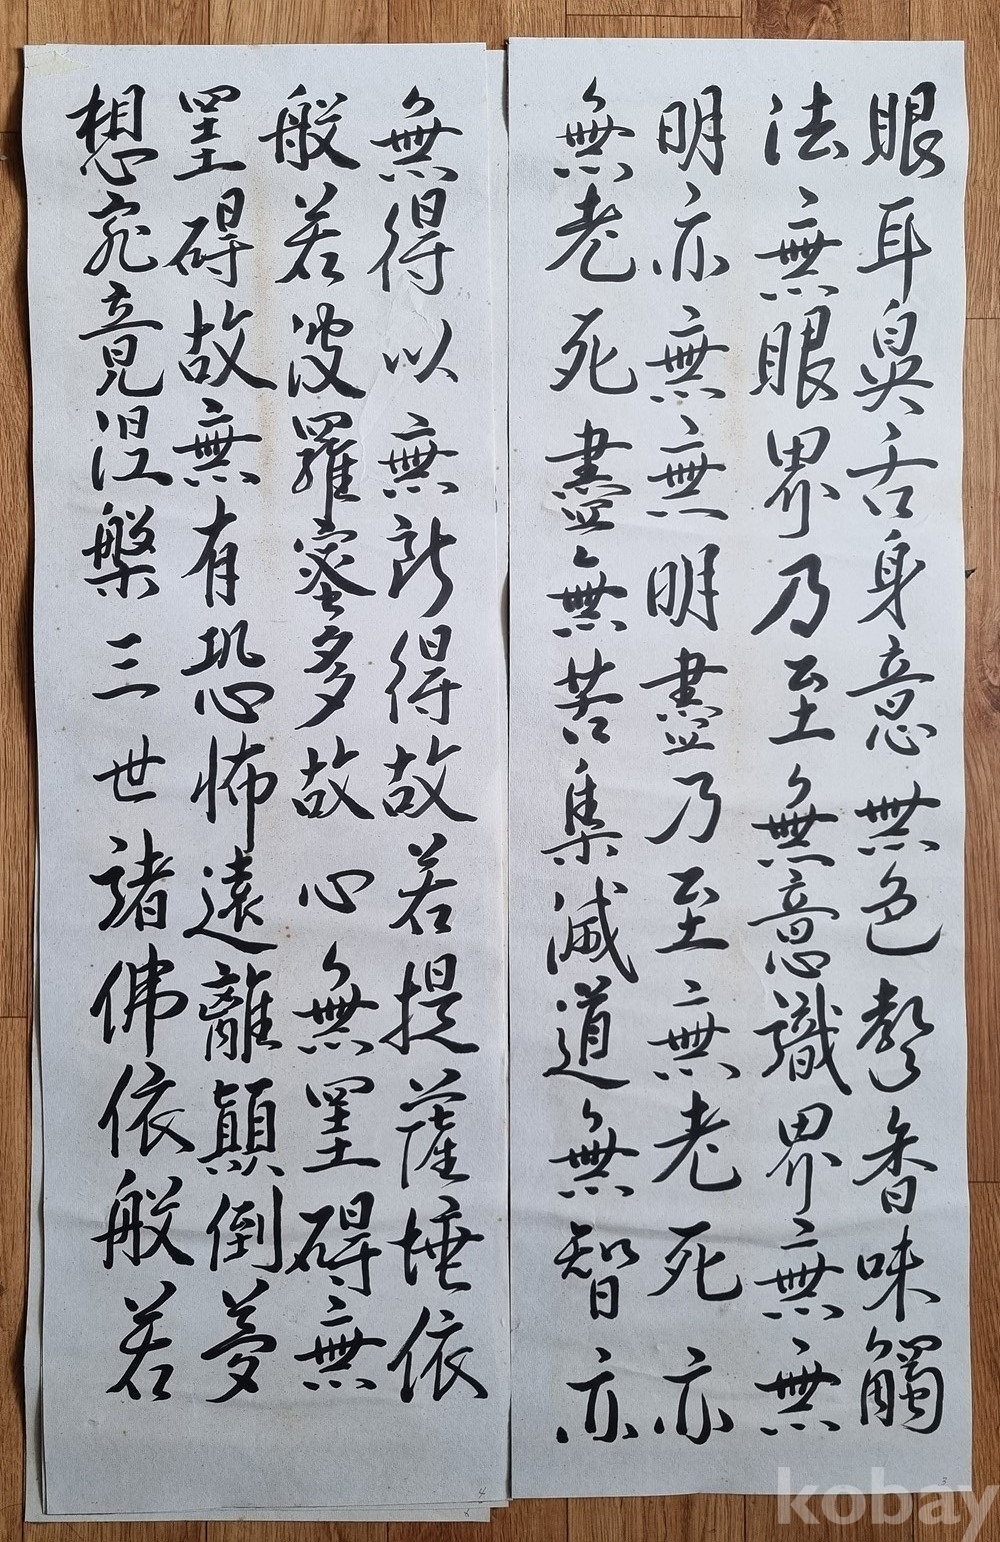 眼耳鼻舌身意無色聲香味觸
法無眼界乃至無意識界無無
明亦無無明盡乃至無老死亦
無老死盡無苦集滅道無智亦
3
無得以無所得故菩提薩埵依
般若波羅蜜多故心無罣碍無
罣碍故無有恐怖遠離顚倒夢
想究竟涅槃三世諸佛依般若
4
kobay